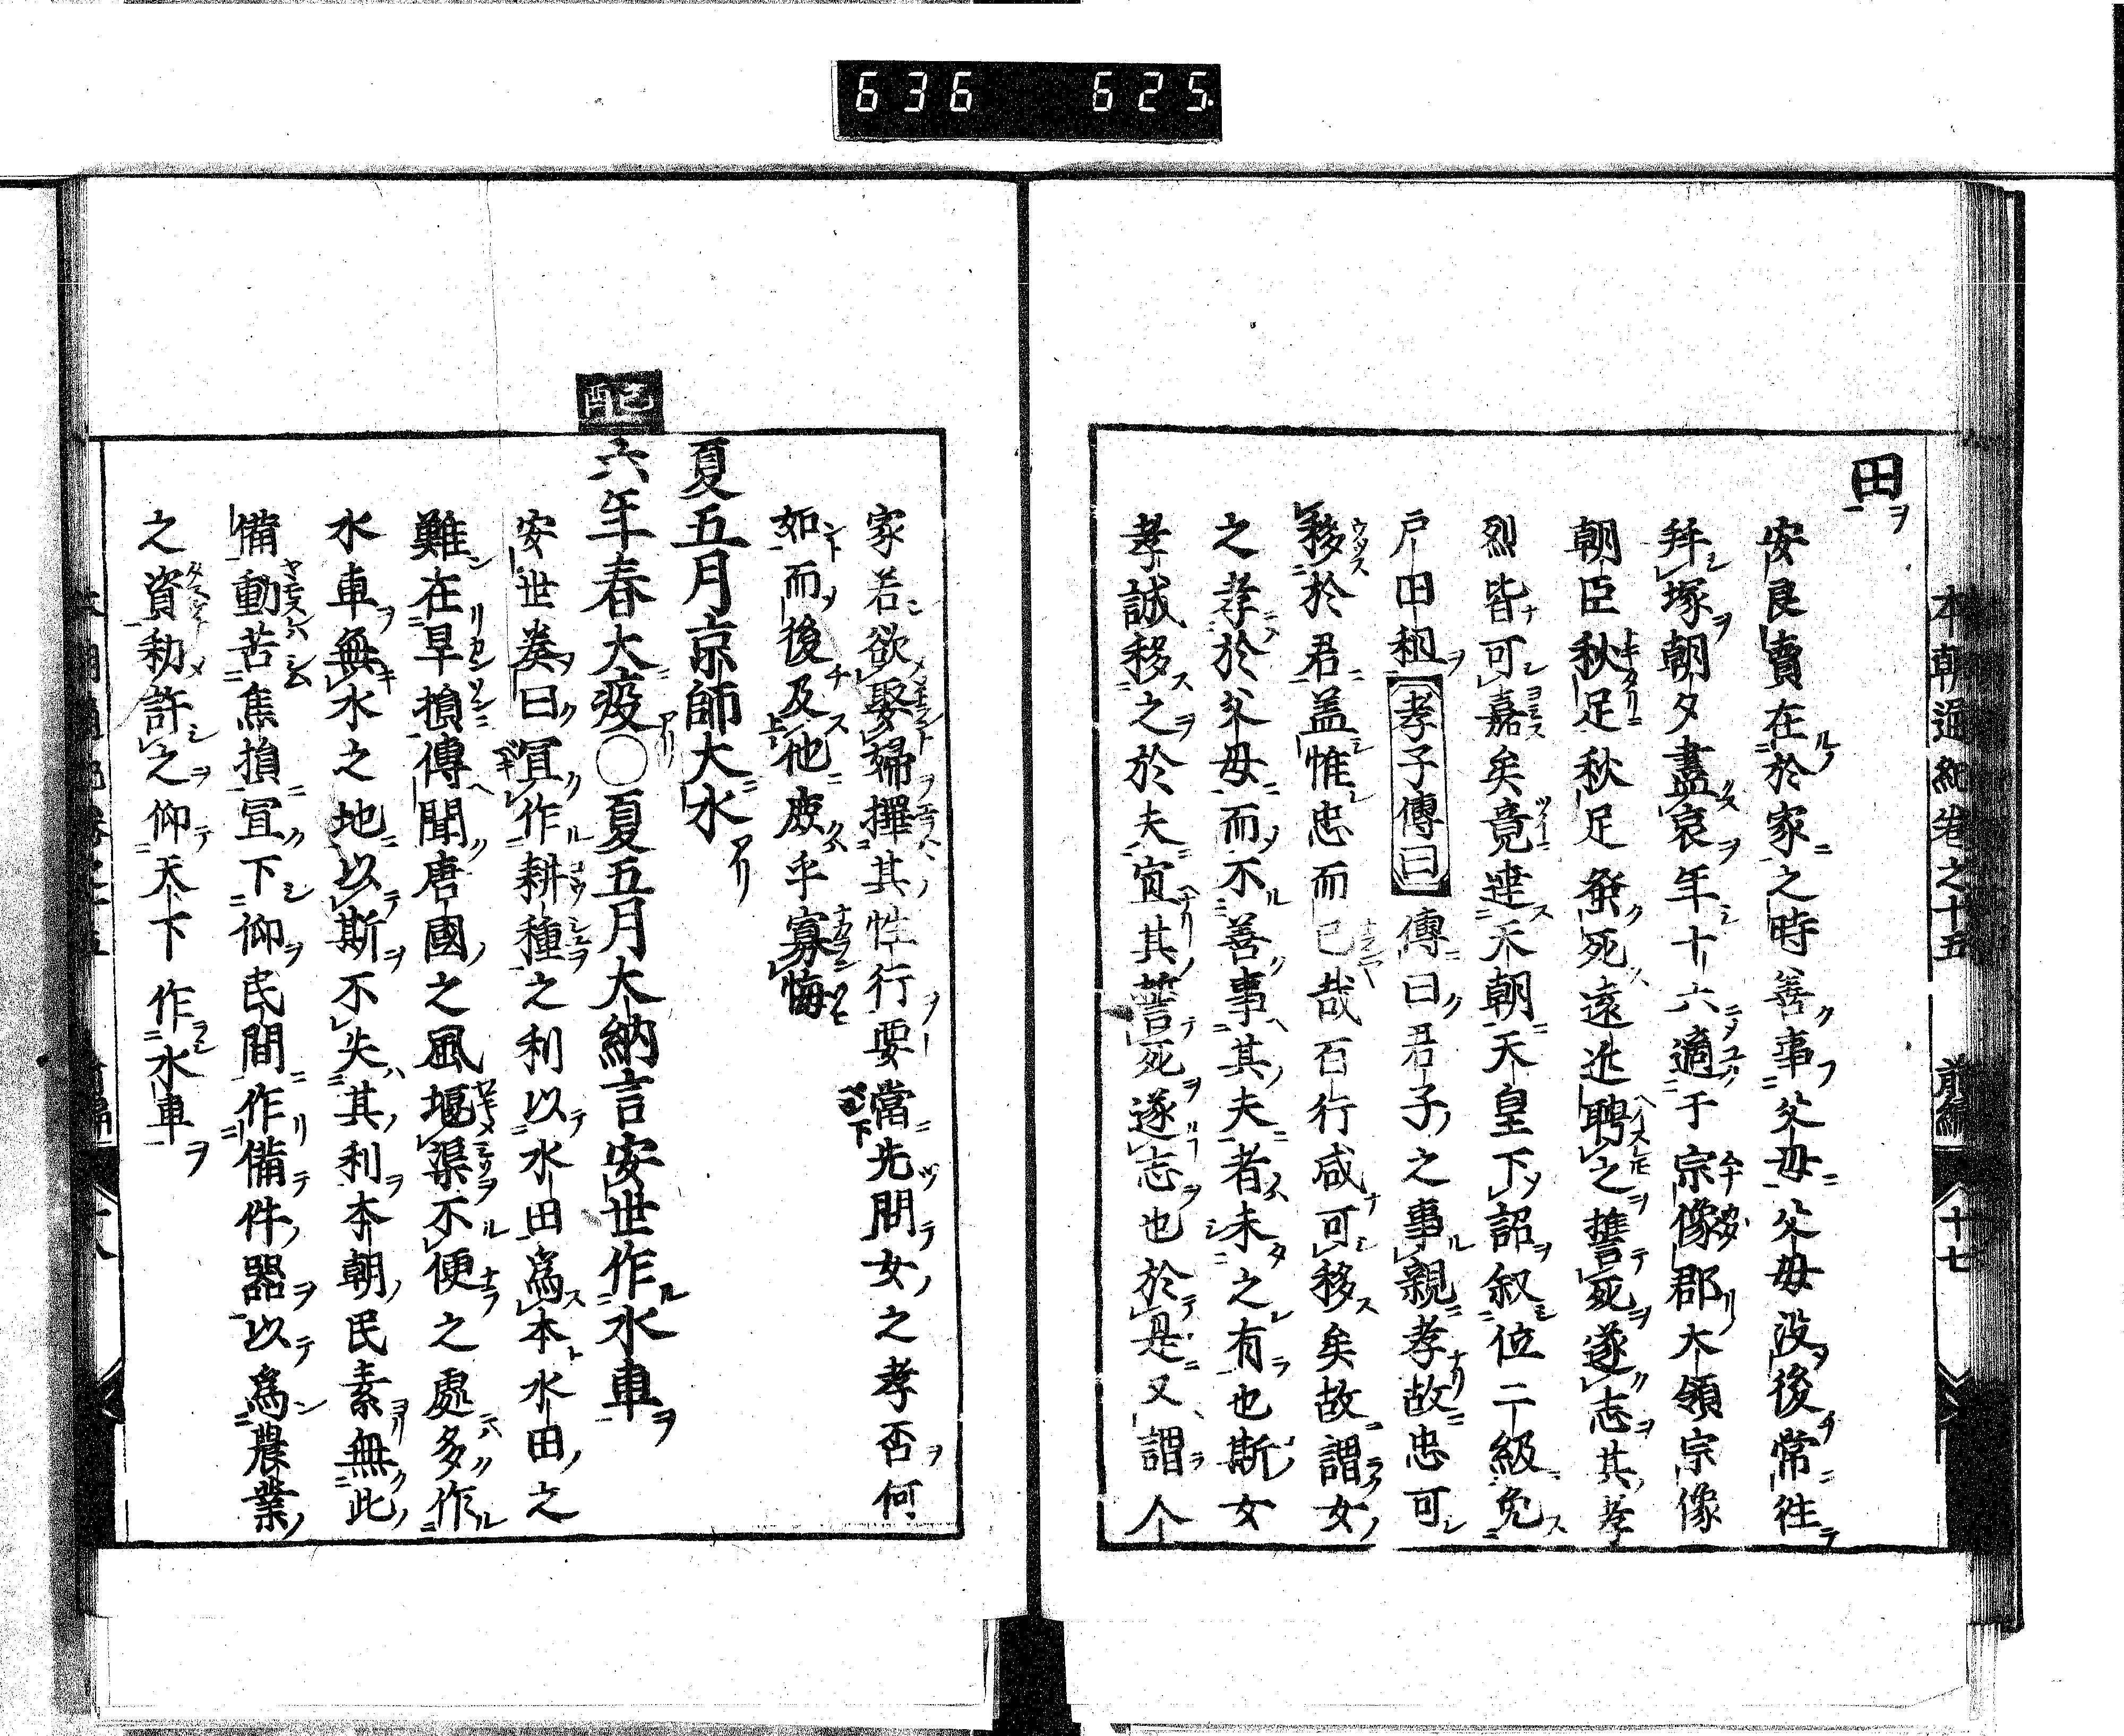 636 625
本朝通紀卷之十五 前編 十七
田ヲ
安良賣在於家之時善事父母父母没後常往
拜塚朝夕盡哀年十六適于宗像郡大領宗像
朝臣秋足秋足發死遠近聘之誓死遂志其孝
烈皆可嘉矣竟達天朝天皇下詔叙位二級免
戸田租孝子傳曰傳曰君子之事親孝故忠可
移於君盖惟忠而已哉百行咸可移矣故謂女
之孝於父母而不善事其夫者未之有也斯女
孝誠移之於夫宜其誓死遂志也於是又謂人
家若欲娶婦擇其性行要當先問女之孝否何
如而後及他庶乎寡悔
夏五月京師大水
己酉
六年春大疫○夏五月大納言安世作水車
安世奏曰冝作耕種之利以水田爲本水田之
難在旱損傳聞唐國之風堰渠不便之處多作
水車無水之地以斯不失其利本朝民素無此
備動苦焦損冝下仰民間作備件器以爲農業
之資勑許之仰天下作水車